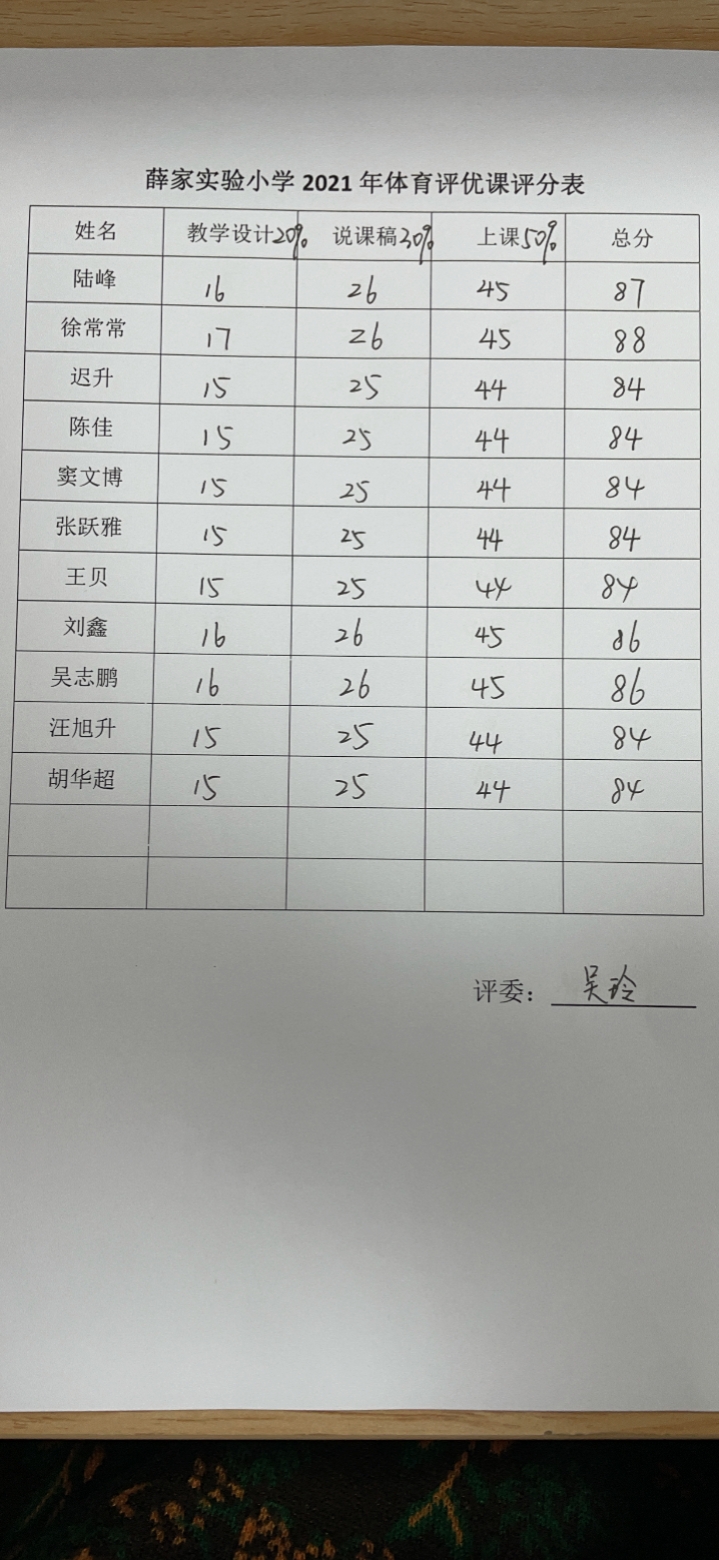 薛家实验小学 2021 年体育评优课评分表
姓名 教学设计20% 说课稿30% 上课50% 总分
陆峰 16 26 45 87
徐常常 17 26 45 88
迟升 15 25 44 84
陈佳 15 25 44 84
窦文博 15 25 44 84
张跃雅 15 25 44 84
王贝 15 25 44 84
刘鑫 16 26 45 86
吴志鹏 16 26 45 86
汪旭升 15 25 44 84
胡华超 15 25 44 84
评委：吴玲